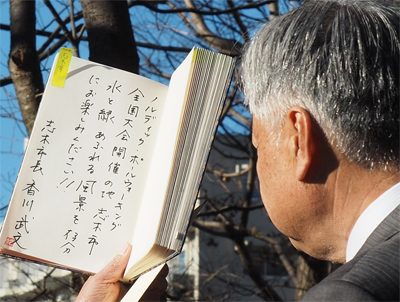 ノルディック・ポールウォーキング
全国大会開催の地 志木市
水と緑あふれる風景を存分
にお楽しみください!!
志木市長 香川 武文